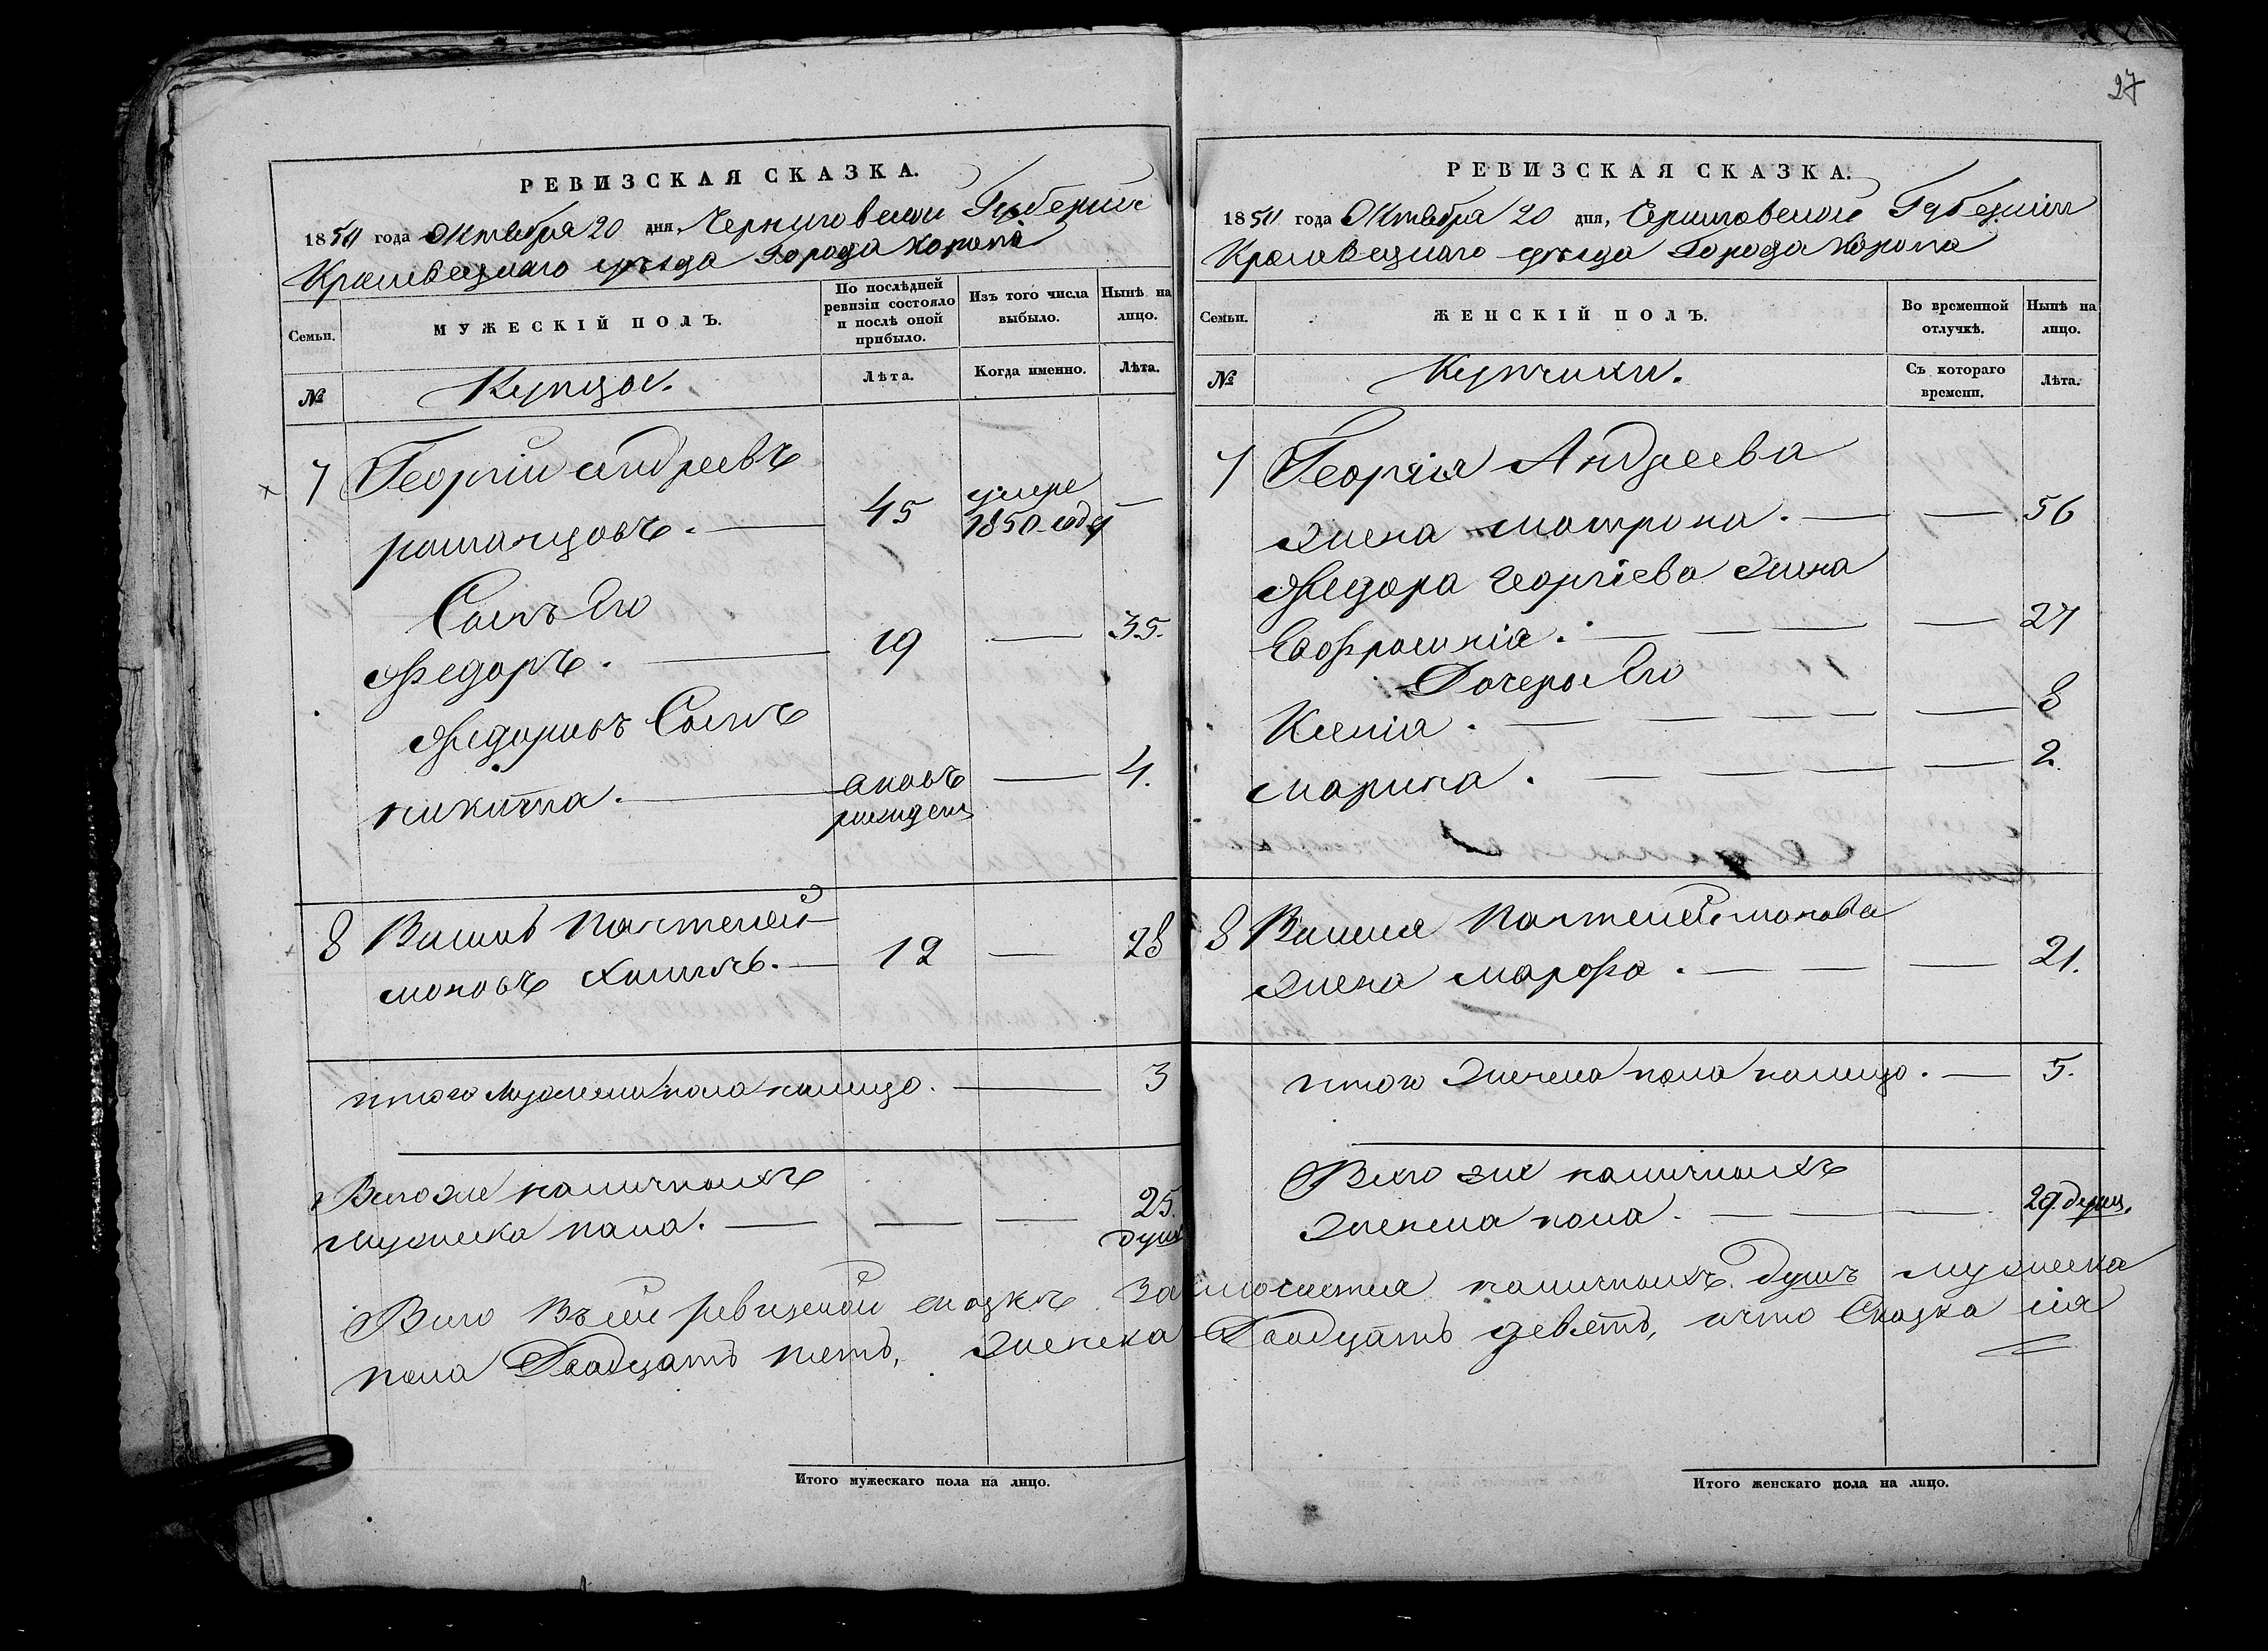 27
РЕВИЗСКАЯ СКАЗКА.
1850 года Октября 20 дня, Черниговской Губернии
Кролевецкаго уезда Города Коропа
Семьи.
МУЖЕСКІЙ ПОЛЪ.
По послѣдней ревизіи состояло и послѣ оной прибыло.
Изъ того числа выбыло.
Нынѣ на лицо.
№
Купцы.
Лѣта.
Когда именно.
Лѣта.
7 Георгій Андреевъ
45 умре 1850 году —
Сынъ Его
Федоръ. — 19 — 35.
Федоровъ Сынъ
никита. — вновь рожден — 4.
8 Пантелей
моновъ — 12 — 28
итого Мужеска пола налицо. — 3
Всего же наличныхъ
Мужеска пола. — — — 25. душъ
Всего Въ сей ревизской сказке Заключается наличныхъ душъ мужеска
пола Двадцать пять, женска Двадцать девять, и что Сказка сия
Итого мужескаго пола на лицо.
РЕВИЗСКАЯ СКАЗКА.
1850 года Октября 20 дня, Черниговской Губернии
Кролевецкаго уезда Города Коропа
Семьи.
ЖЕНСКІЙ ПОЛЪ.
Во временной отлучкѣ.
Нынѣ на лицо.
№
Купчихи.
Съ котораго времени.
Лѣта.
7 Георгія Андреева
жена Матрона. — — 56
Федора Георгіева жена
Евфросинія. — — — — 27
Дочеры Его
Ксенія. — — — — — 8
Марина. — — — — 2.
8 Пантелеймонова
жена Марфа. — — — 21.
итого женска пола налицо. — 5.
Всего же наличныхъ
женска пола. — — — 29. душъ,
Итого женскаго пола на лицо.